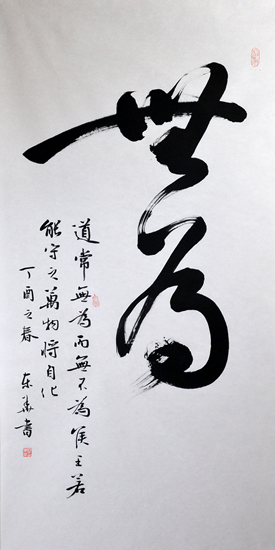 無為
道常無為而無不為侯王若
能守之萬物將自化
丁酉之春
东华書